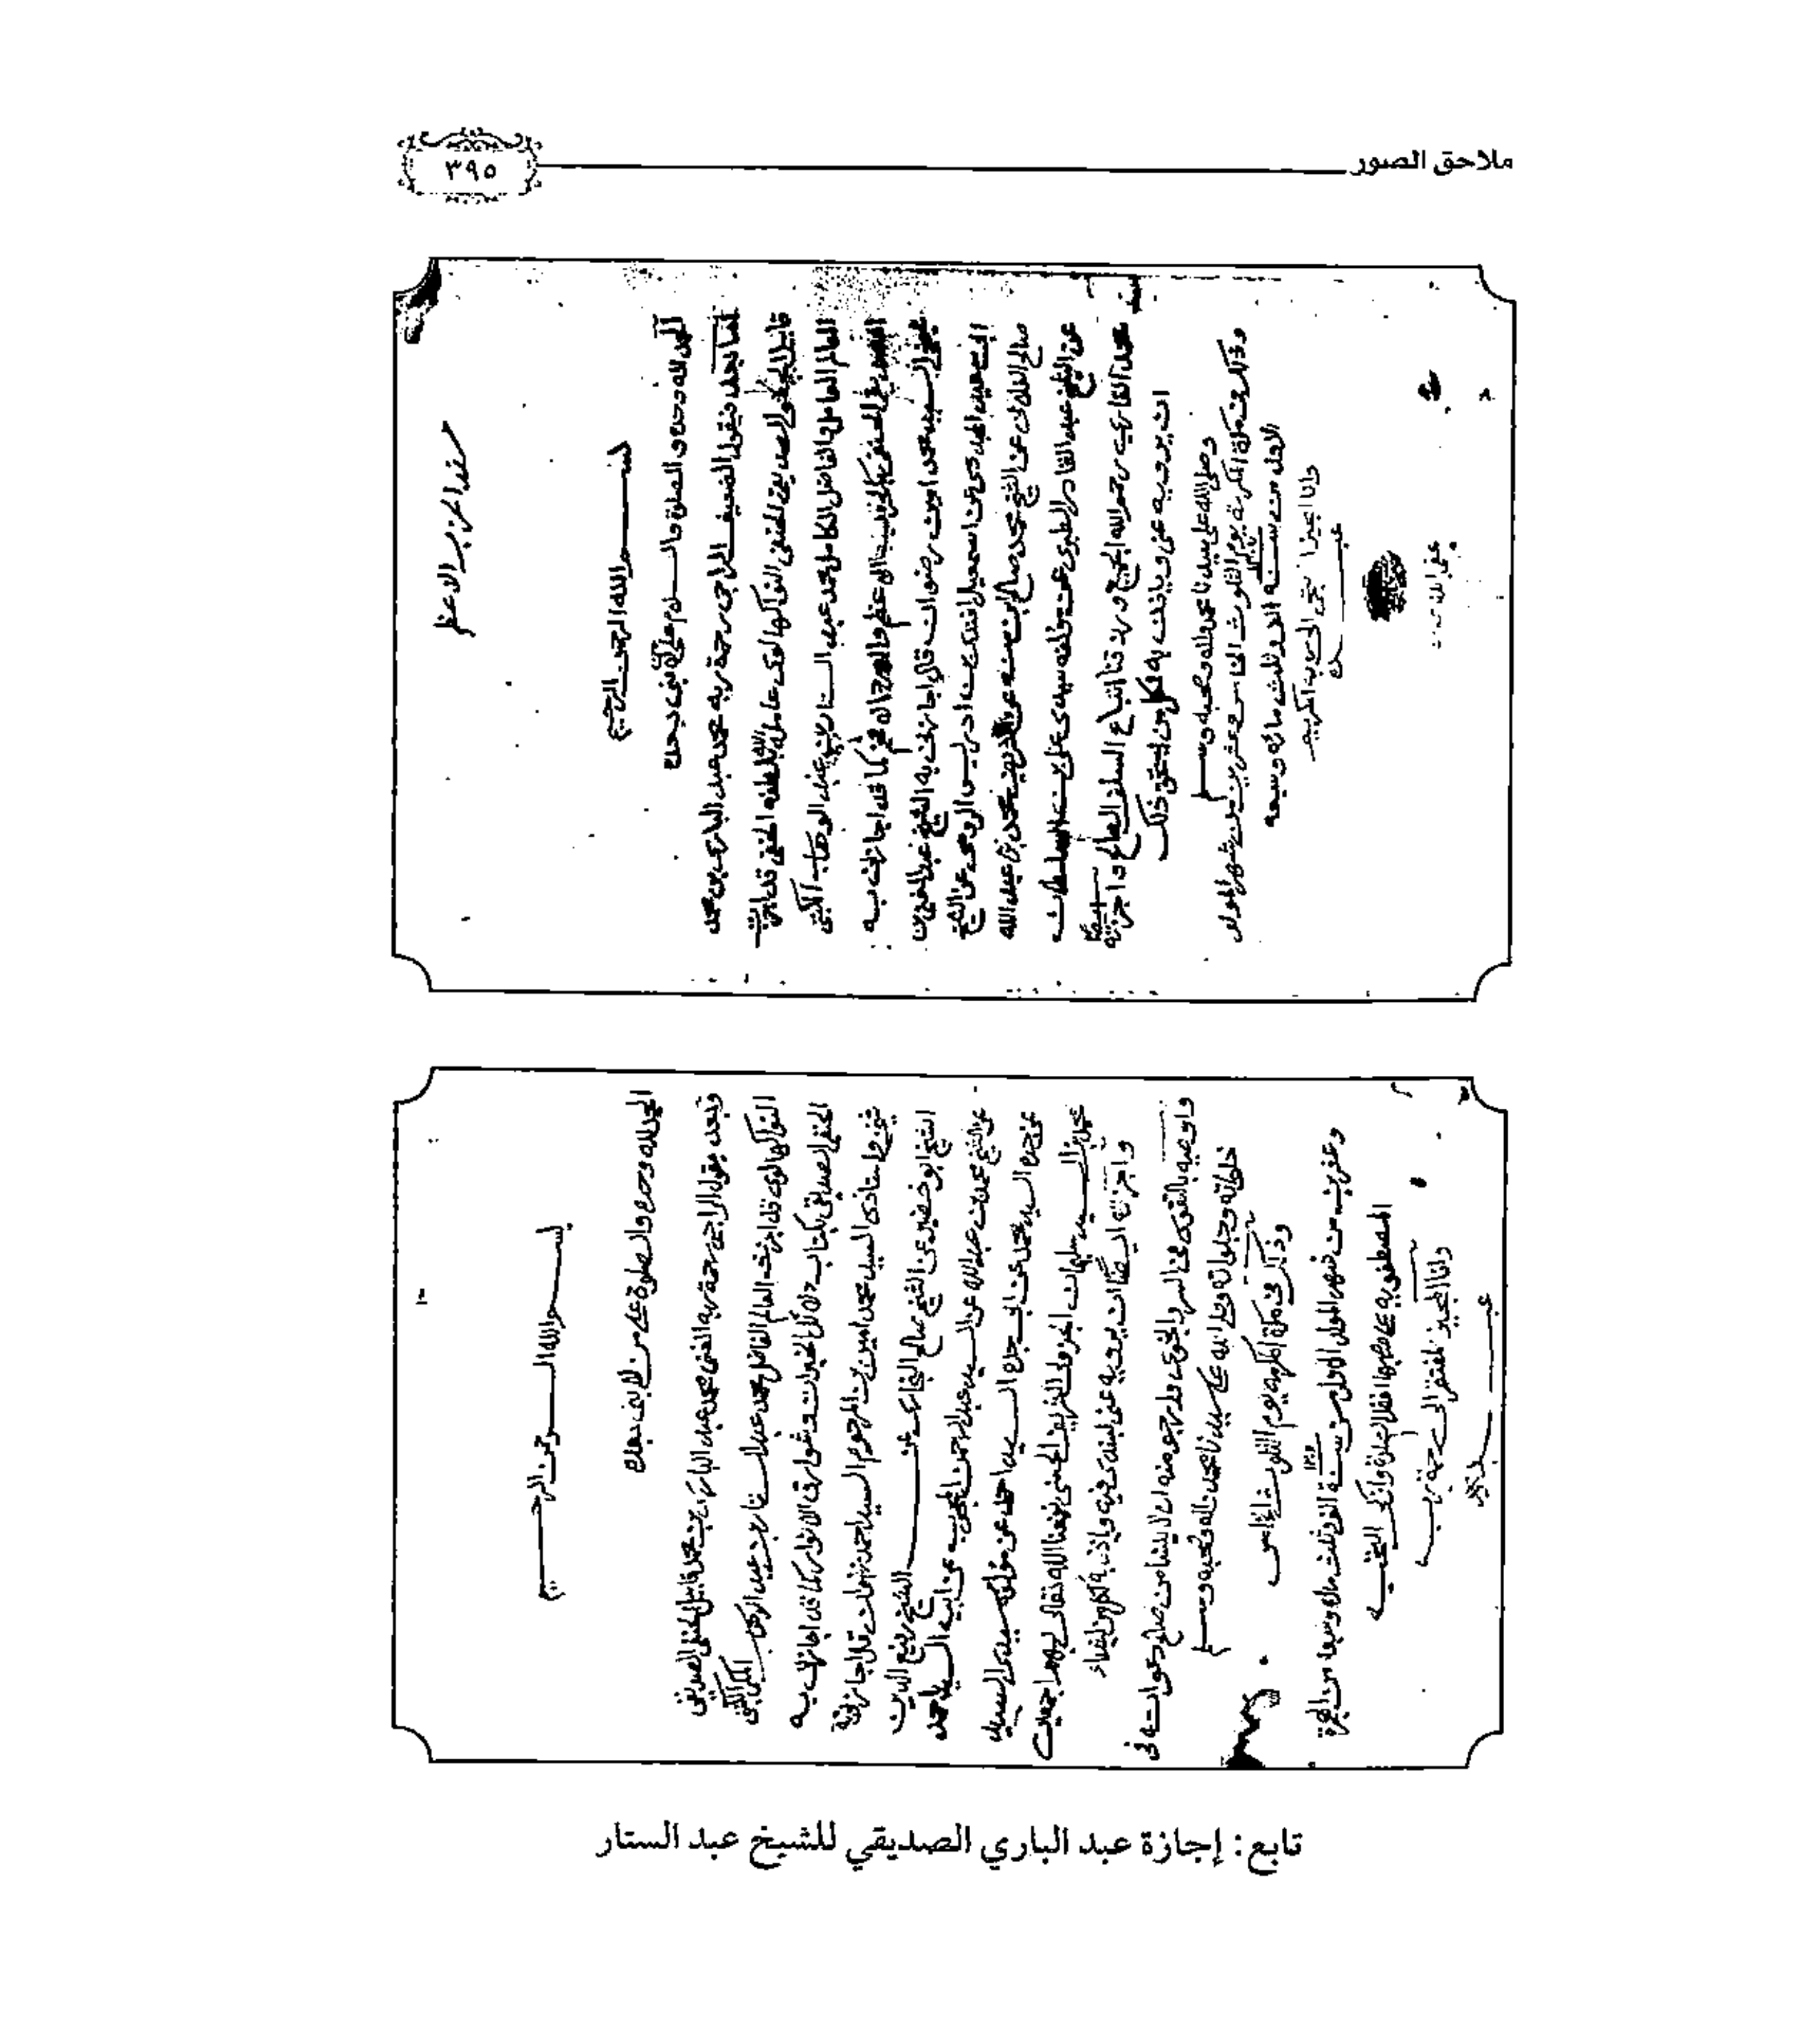 ملاحق الصور
٣٩٥
سند الحزب الاعظم
بسم الله الرحمن الرحيم
الحمد لله وحده والصلاة والسلام على من لا نبي بعده
اما بعد فيقول الضعيف الراجي رحمة ربه محمد عبد الباري بن محمد
الصديقي الحنفي عامله بلطفه الخفي قد اجزت
العالم العامل والفاضل الكامل محمد عبد الستار بن عبد الوهاب الكتبي
كما قد اجازني به
السيد محمد امين رضوان قال اجازني به الشيخ عبد الغني بن
ابي سعيد عن اسمعيل افندي بن ادريس الرومي عن الشيخ
صالح الفلاني عن الشيخ محمد بن محمد بن عبد الله
عن الشيخ عبد القادر الطبري عن مؤلفه سيدي علي بن سلطان
محمد القاري رحم الله الجميع ورزقنا اتباع السلف الصالح واجزته
ان يرويه عني ويأذن به لكل من يستحق ذلك
وصلى الله على سيدنا محمد واله وصحبه وسلم
وذلك في مكة المكرمة يوم الثلوث الخامس وعشرين من شهر المولد
الاول من سنة الف وثلث مائة وسبعة
وانا المجيز
بسم الله الرحمن الرحيم
الحمد لله وحده والصلوة على من لا نبي بعده
وبعد فيقول الراجي رحمة ربه الغني محمد عبد الباري بن محمد الحنفي الصديقي
قد اجزت العالم الفاضل محمد عبد الستار بن عبد الوهاب المكي الكتبي
الحنفي الصديقي بكتاب دلائل الخيرات وشوارق الانوار كما قد اجازني به
شيخي واستاذي السيد محمد امين بن المرحوم السيد احمد رضوان قد اجازني به
الشيخ ابو خضير عن الشيخ صالح البخاري عن الشيخ رفيع الدين
عن الشيخ محمد بن عبد الله عن السيد عبد الرحمن المحجوب عن ابيه السيد احمد
عن جده السيد محمد عن ابي جده السيد احمد عن مؤلفه سيدي السيد
محمد بن السيد سليمان الجزولي الشريف الحسني نفعنا الله تعالى بهم اجمعين
واجزته ايضا ان يرويه عني لسندي فيه وياذن به لكل من يشاء
واوصيه بالتقوى في السر والنجوى والمرجو منه ان لا ينسانا من صالح دعواته في
خلواته وجلواته وصلى الله على سيدنا محمد واله وصحبه وسلم
وذلك في مكة المكرمة يوم الثلوث الخامس
وعشرين من شهر المولد الاول من سنة الف وثلث مائة وسبعة من الهجرة
المصطفوية على صاحبها افضل الصلاة وازكى التحية
وانا المجيز المفتقر الى رحمة ربه
تابع: إجازة عبد الباري الصديقي للشيخ عبد الستار